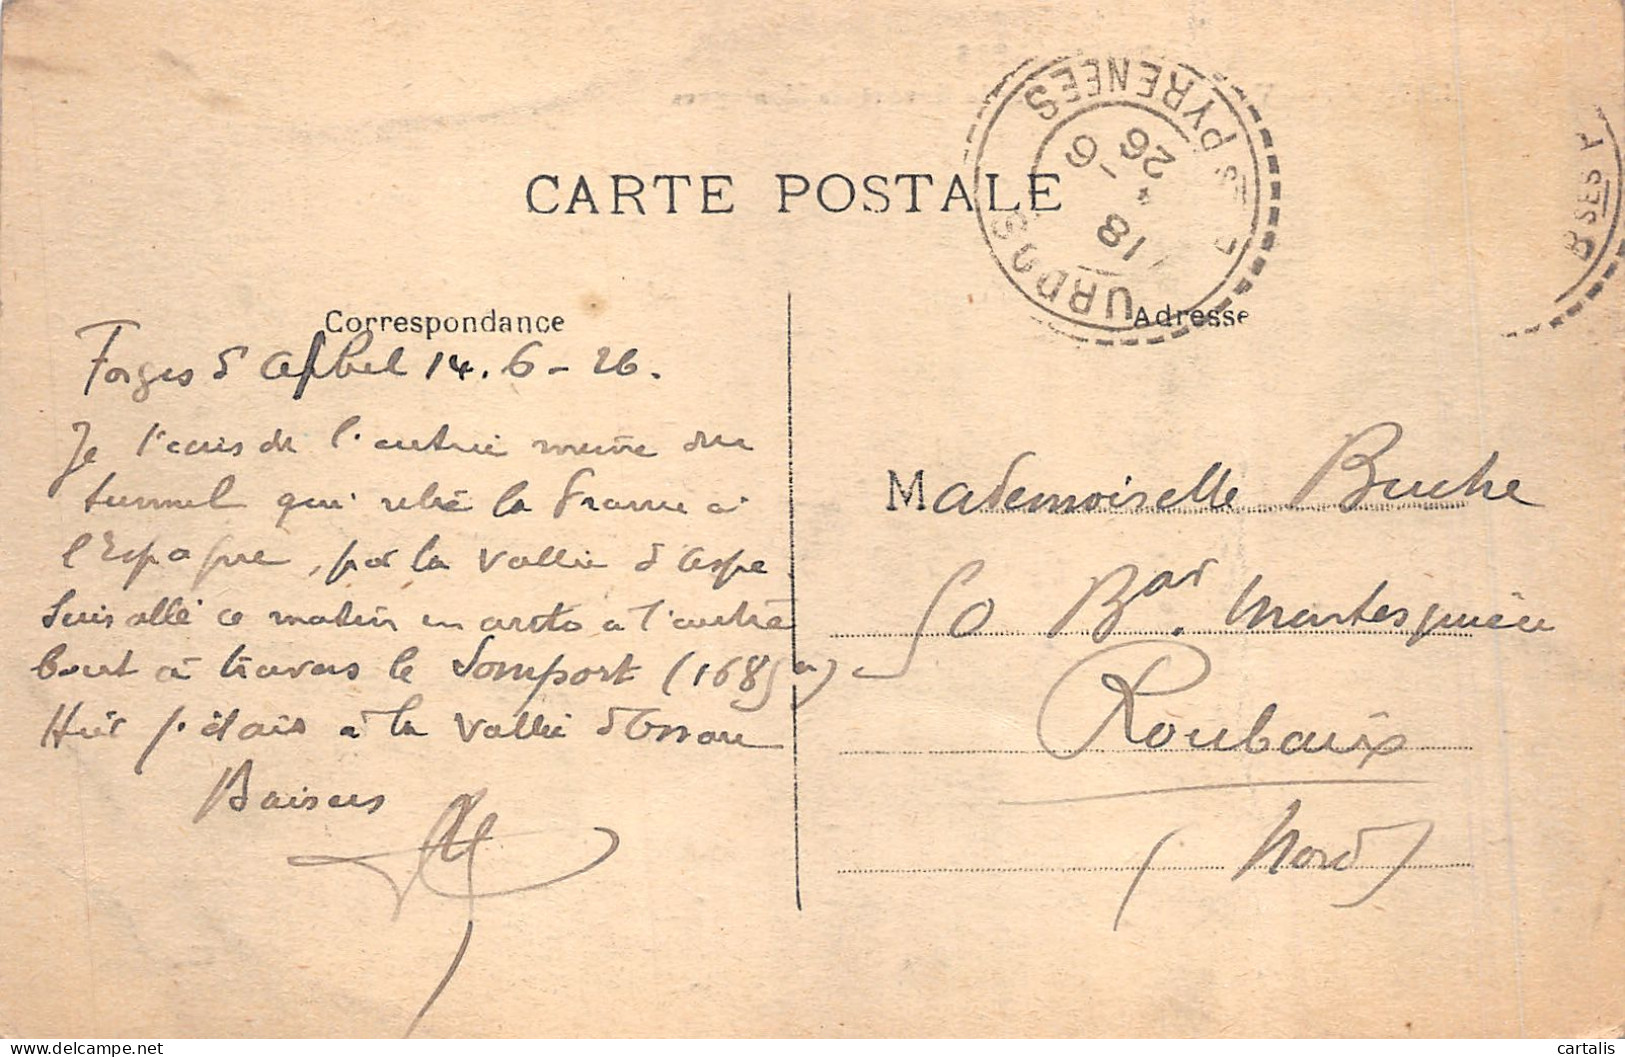 CARTE POSTALE
URDOS
Bses PYRENEES
18
6
26
Bses P
Correspondance
Adresse
Forges d'Abel 14.6-26.
Je t'écris de l'entrée même du
tunnel qui relie la France à
l'Espagne, par la Vallée d'Aspe
Suis allé ce matin en auto à l'autre
bout à travers le Somport (1685m)
Hier j'étais à la Vallée d'Ossau
Baisers
Mademoiselle Buche
50 Bar Montesquieu
Roubaix
(Nord)
cartalis